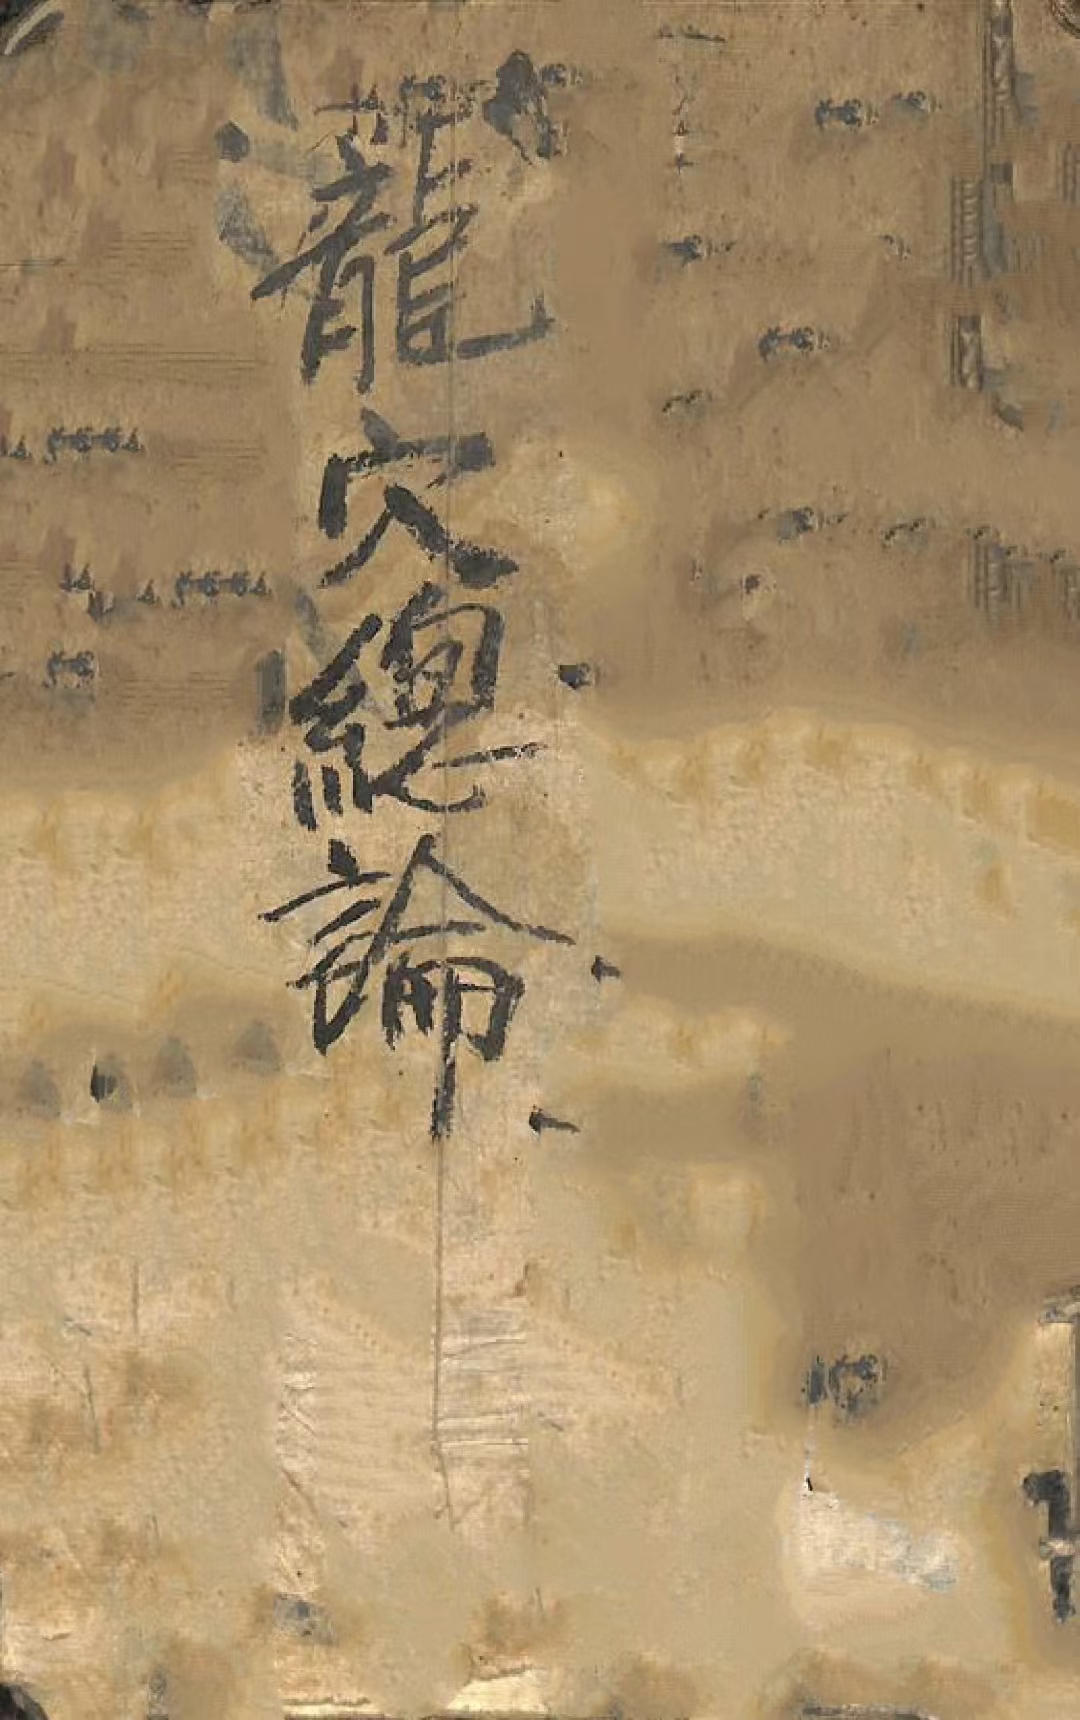 龍穴總論